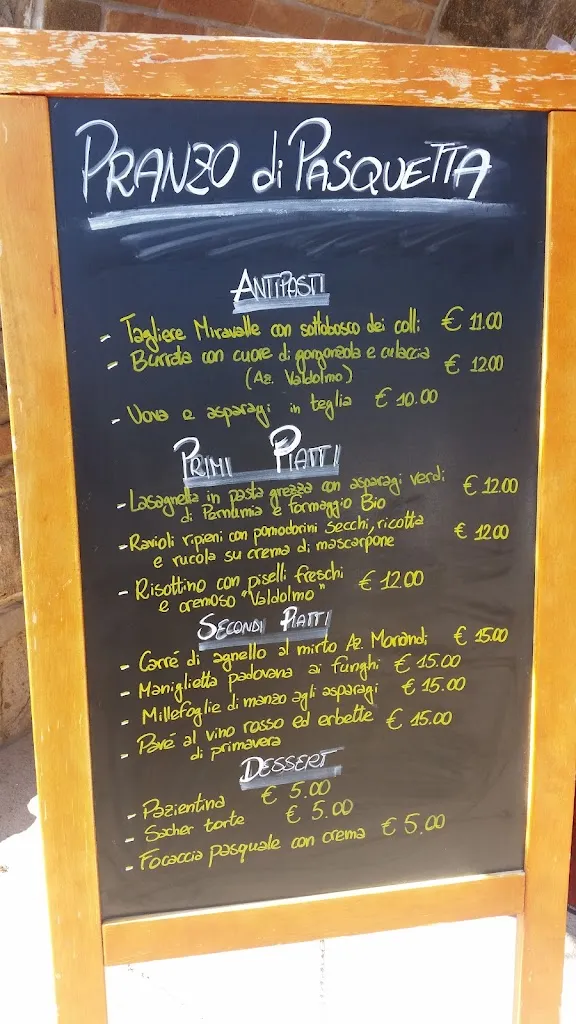 PRANZO di PASQUETTA
ANTIPASTI
- Tagliere Miravalle con sottobosco dei colli € 11.00
- Burrata con cuore di gorgonzola e culaccia € 12.00
(Az. Valdolmo)
- Uova e asparagi in teglia € 10.00
PRIMI PIATTI
- Lasagnetta in pasta grezza con asparagi verdi € 12.00
di Pernumia e formaggio Bio
- Ravioli ripieni con pomodorini secchi, ricotta € 12.00
e rucola su crema di mascarpone
- Risottino con piselli freschi € 12.00
e cremoso "Valdolmo"
SECONDI PIATTI
- Carré di agnello al mirto Az. Morandi € 15.00
- Maniglietta padovana ai funghi € 15.00
- Millefoglie di manzo agli asparagi € 15.00
- Pavé al vino rosso ed erbette € 15.00
di primavera
DESSERT
- Pazientina € 5.00
- Sacher torte € 5.00
- Focaccia pasquale con crema € 5.00